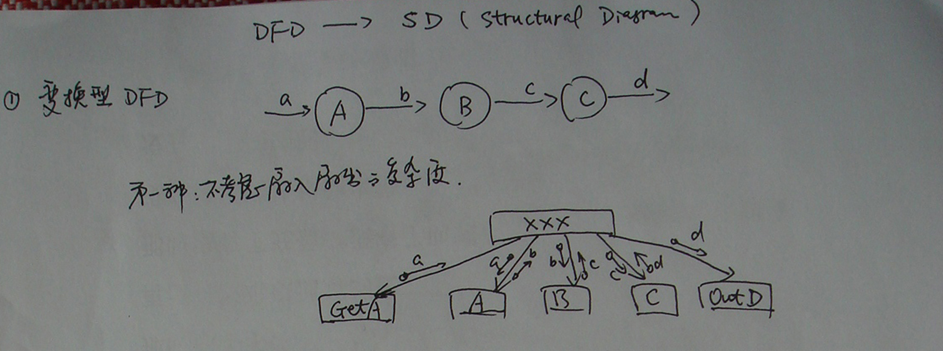 DFD → SD (Structural Diagram)
① 变换型 DFD
a A b B c C d
第一种:不考虑扇入扇出之复杂度.
XXX
a a b b c c d d
GetA A B C OutD